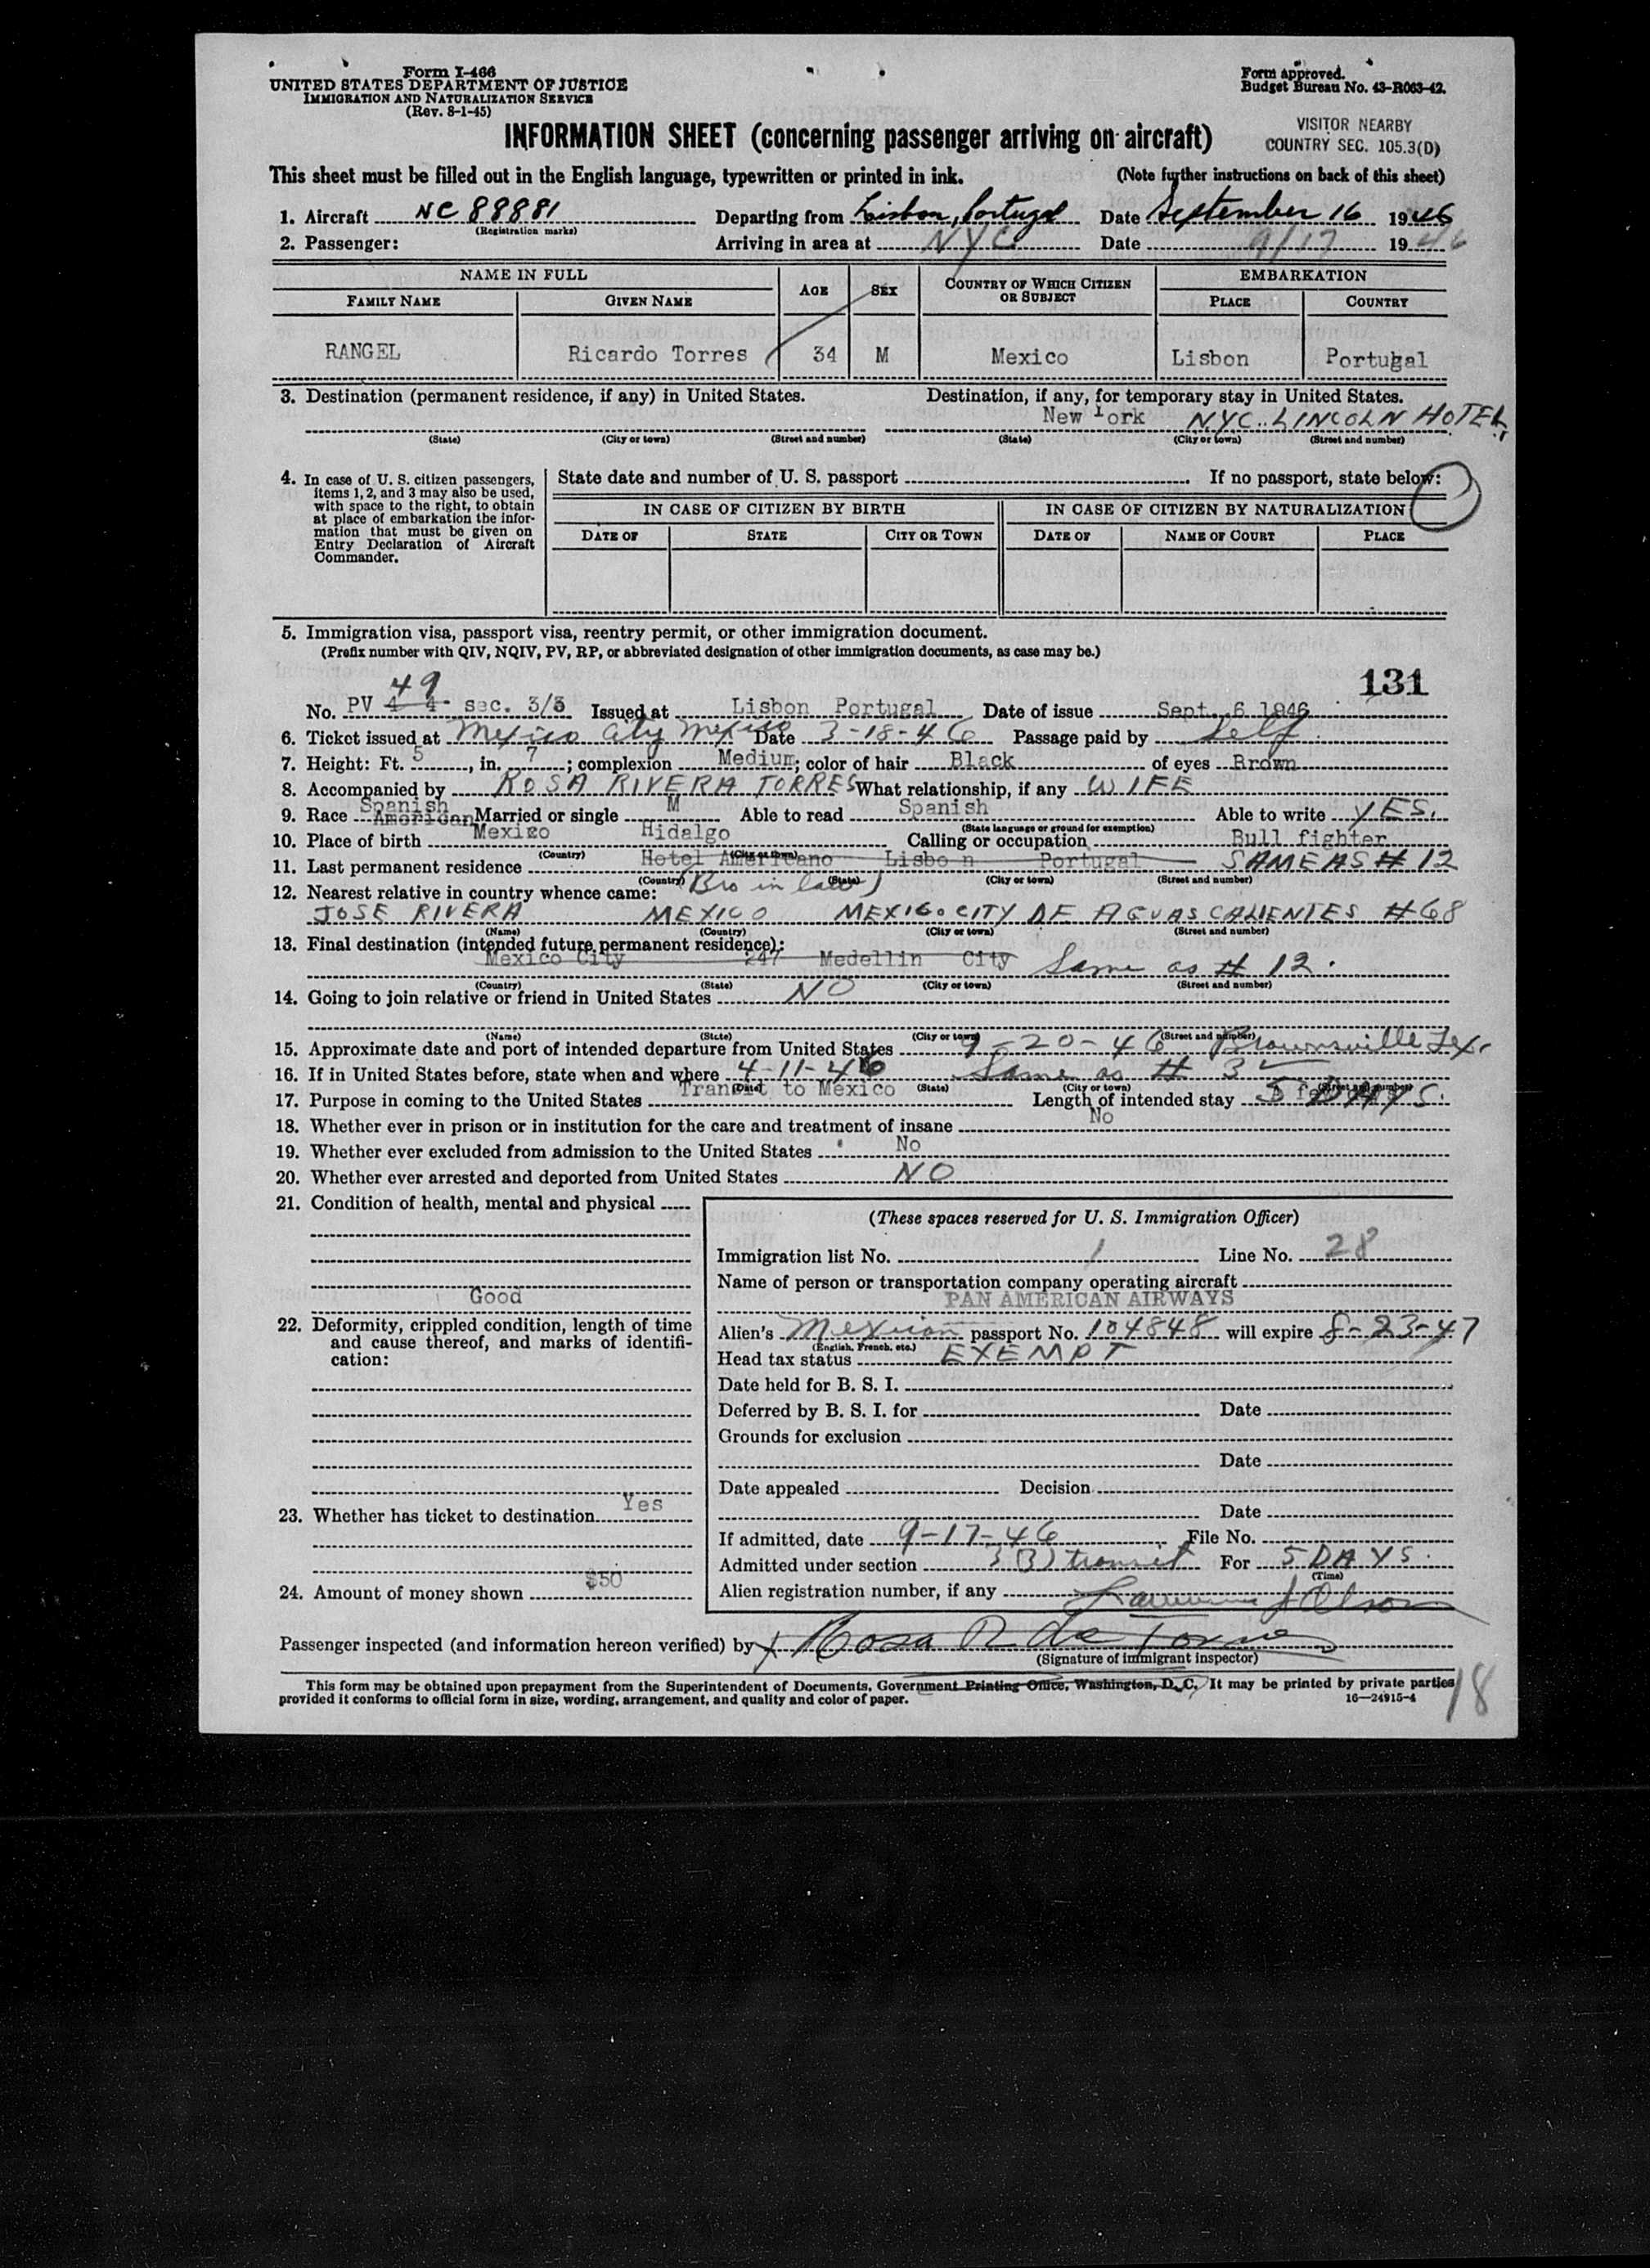 Form I-466
UNITED STATES DEPARTMENT OF JUSTICE
IMMIGRATION AND NATURALIZATION SERVICE
(Rev. 8-1-45)
Form approved.
Budget Bureau No. 43-R063-42.
VISITOR NEARBY
COUNTRY SEC. 105.3(D)
INFORMATION SHEET (concerning passenger arriving on aircraft)
This sheet must be filled out in the English language, typewritten or printed in ink. (Note further instructions on back of this sheet)
1. Aircraft NC 88881 Departing from Lisbon, Portugal Date September 16 1946
(Registration marks)
2. Passenger: Arriving in area at NYC Date 9/17 1946
NAME IN FULL AGE SEX COUNTRY OF WHICH CITIZEN OR SUBJECT EMBARKATION
FAMILY NAME GIVEN NAME PLACE COUNTRY
RANGEL Ricardo Torres 34 M Mexico Lisbon Portugal
3. Destination (permanent residence, if any) in United States. Destination, if any, for temporary stay in United States.
New York NYC. LINCOLN HOTEL
(State) (City or town) (Street and number) (State) (City or town) (Street and number)
4. In case of U. S. citizen passengers, items 1, 2, and 3 may also be used, with space to the right, to obtain at place of embarkation the information that must be given on Entry Declaration of Aircraft Commander.
State date and number of U. S. passport If no passport, state below:
IN CASE OF CITIZEN BY BIRTH IN CASE OF CITIZEN BY NATURALIZATION
DATE OF STATE CITY OR TOWN DATE OF NAME OF COURT PLACE
5. Immigration visa, passport visa, reentry permit, or other immigration document.
(Prefix number with QIV, NQIV, PV, RP, or abbreviated designation of other immigration documents, as case may be.)
131
49
No. PV 4 4 sec. 3/3 Issued at Lisbon Portugal Date of issue Sept. 6 1946
6. Ticket issued at Mexico City Mexico Date 3-18-46 Passage paid by Self
7. Height: Ft. 5, in. 7; complexion Medium; color of hair Black of eyes Brown
8. Accompanied by ROSA RIVERA TORRES What relationship, if any WIFE
9. Race Spanish American Married or single M Able to read Spanish Able to write YES.
(State language or ground for exemption)
10. Place of birth Mexico Hidalgo Calling or occupation Bull fighter
(Country) (City or town)
11. Last permanent residence Hotel Americano Lisbon Portugal SAME AS # 12
(Country) (State) (City or town) (Street and number)
12. Nearest relative in country whence came: (Bro in law)
JOSE RIVERA MEXICO MEXICO. CITY DF AGUAS CALIENTES #68
(Name) (Country) (City or town) (Street and number)
13. Final destination (intended future permanent residence):
Mexico City 247 Medellin City Same as # 12.
(Country) (State) (City or town) (Street and number)
14. Going to join relative or friend in United States NO
(Name) (State) (City or town) (Street and number)
15. Approximate date and port of intended departure from United States 9-20-46 Brownsville Tex.
16. If in United States before, state when and where 4-11-46 Same as # 3
(Date) (State) (City or town) (Street and number)
17. Purpose in coming to the United States Transit to Mexico Length of intended stay 5 DAYS.
18. Whether ever in prison or in institution for the care and treatment of insane No
19. Whether ever excluded from admission to the United States No
20. Whether ever arrested and deported from United States NO
21. Condition of health, mental and physical
Good
22. Deformity, crippled condition, length of time and cause thereof, and marks of identification:
23. Whether has ticket to destination Yes
24. Amount of money shown $50
(These spaces reserved for U. S. Immigration Officer)
Immigration list No. 1 Line No. 28
Name of person or transportation company operating aircraft
PAN AMERICAN AIRWAYS
Alien's Mexican passport No. 104848 will expire 8-23-47
(English, French, etc.)
Head tax status EXEMPT
Date held for B. S. I.
Deferred by B. S. I. for Date
Grounds for exclusion
Date
Date appealed Decision
Date
If admitted, date 9-17-46 File No.
Admitted under section 3(3) transit For 5 DAYS.
(Time)
Alien registration number, if any
Passenger inspected (and information hereon verified) by X Rosa R de Torres
(Signature of immigrant inspector)
This form may be obtained upon prepayment from the Superintendent of Documents, Government Printing Office, Washington, D. C. It may be printed by private parties
provided it conforms to official form in size, wording, arrangement, and quality and color of paper. 16—24915-4
18